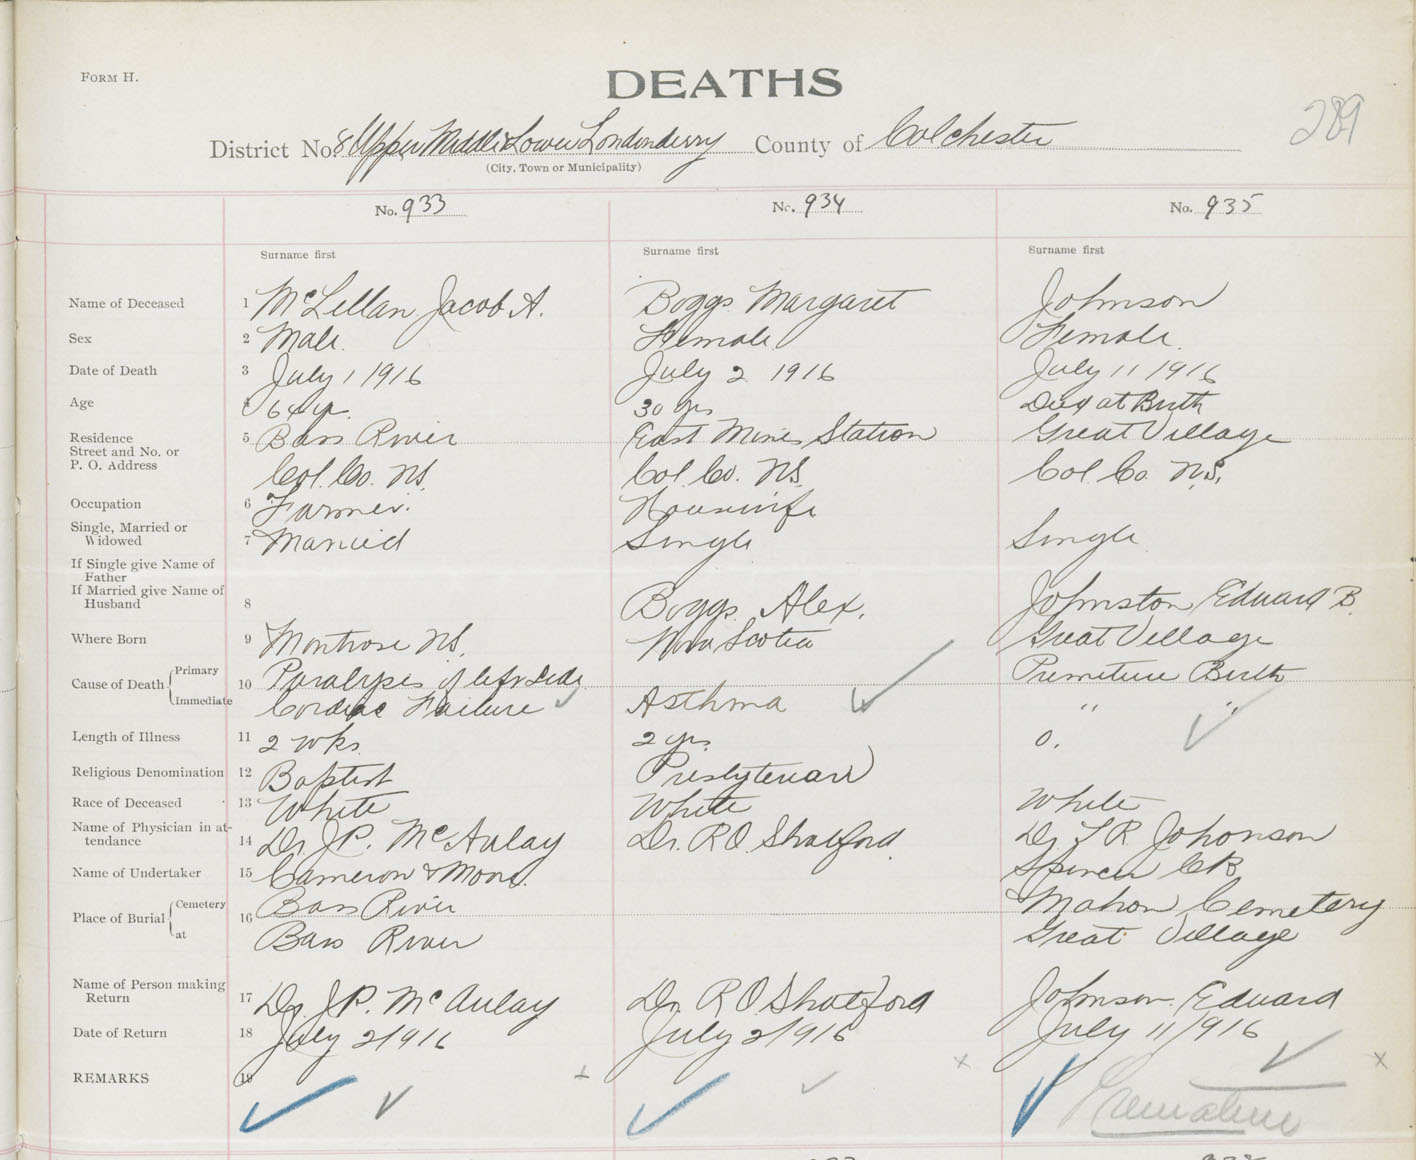 FORM H.
DEATHS
289
District No. 8 Upper Middle & Lower Londonderry County of Colchester
(City, Town or Municipality)
No. 933 No. 934 No. 935
Surname first Surname first Surname first
Name of Deceased 1 McLellan Jacob A. Boggs Margaret Johnson
Sex 2 Male. Female Female.
Date of Death 3 July 1 1916 July 2 1916 July 11 1916
Age 4 64 yr. 30 yrs Died at Birth
Residence 5 Bass River East Mines Station Great Village
Street and No. or
P. O. Address Col. Co. NS. Col. Co. NS. Col. Co. N.S.
Occupation 6 Farmer. Housewife
Single, Married or
Widowed 7 Married Single Single
If Single give Name of
Father
If Married give Name of
Husband 8 Boggs Alex. Johnston Edward B.
Where Born 9 Montrose NS. Nova Scotia Great Village
Cause of Death Primary 10 Paralysis of left side Premeture Birth
Immediate Cordiac Faeture Asthma " "
Length of Illness 11 2 wks. 2 yrs. 0.
Religious Denomination 12 Baptist Presbyterian
Race of Deceased 13 White White White
Name of Physician in at-
tendance 14 Dr. J.P. McAulay Dr. R.O. Shatford. Dr T R Johonson
Name of Undertaker 15 Cameron & Moore. Spencer CR
Place of Burial Cemetery 16 Bass River Mahon Cemetery
at Bass River Great Village
Name of Person making
Return 17 Dr. J.P. McAulay Dr. R O Shatford Johnson Edward
Date of Return 18 July 2/1916 July 2/1916 July 11/1916
REMARKS 19 Premature